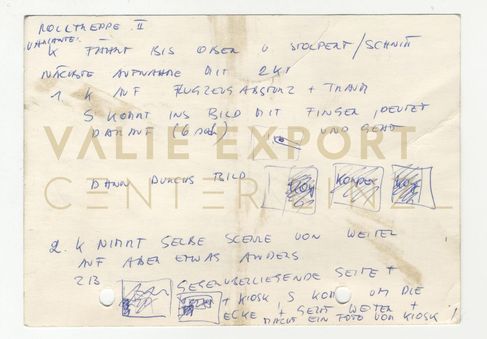 ROLLTREPPE II
VARIANTE:
K FÄHRT BIS OBEN U STOLPERT/SCHNITT
NÄCHSTE AUFNAHME MIT 2KI
1. K AUF FLUGZEUGABSTURZ + TRANK
S KOMMT INS BILD MIT FINGER, DEUTET
DARAUF (6 mal) UND GEHT
VALIE EXPORT
CENTER LINZ
DANN DURCHS BILD
KÖRPER
2. K NIMMT SELBE SCENE VON WEITER
AUF ABER ETWAS ANDERS
ZB GEGENÜBERLIEGENDE SEITE +
+ KIOSK, S KOMMT UM DIE
ECKE + GEHT WEITER +
MACHT EIN FOTO VOM KIOSK!